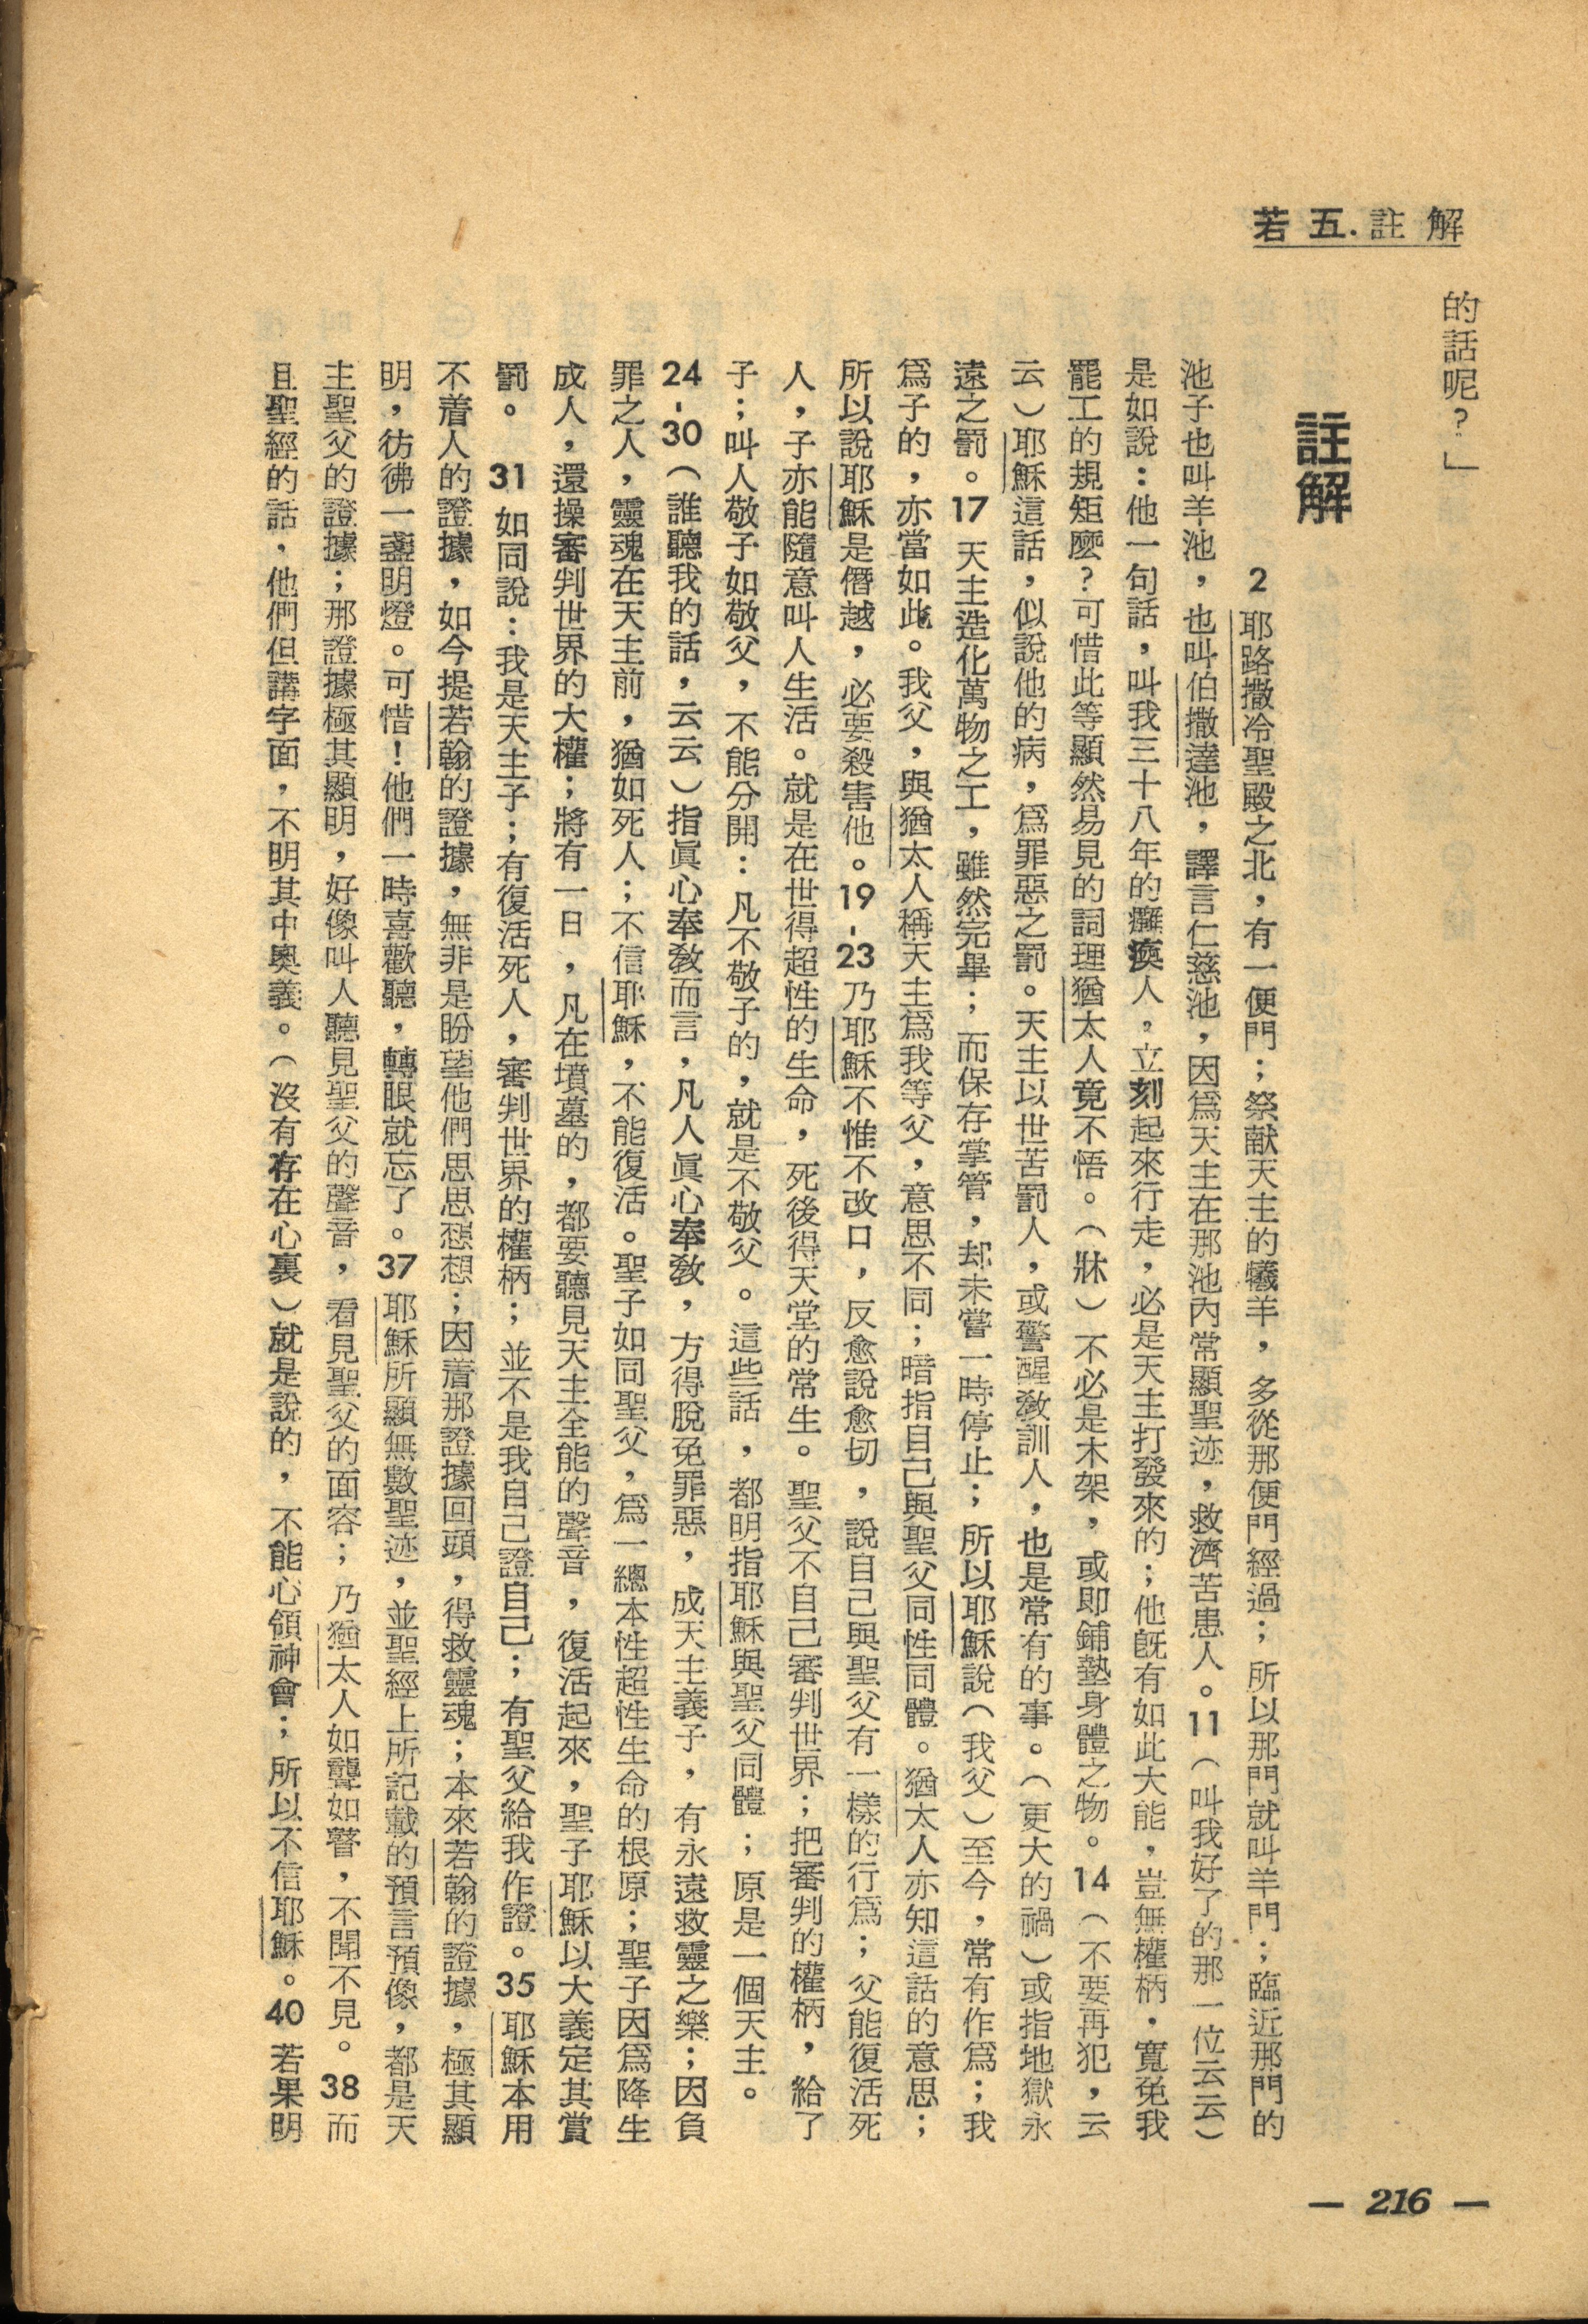 若五.註解
的話呢?」
註解
2 耶路撒冷聖殿之北,有一便門;祭献天主的犧羊,多從那便門經過;所以那門就叫羊門;臨近那門的
池子也叫羊池,也叫伯撒達池,譯言仁慈池,因爲天主在那池內常顯聖迹,救濟苦患人。11(叫我好了的那一位云云)
是如說:他一句話,叫我三十八年的癱瘓人,立刻起來行走,必是天主打發來的;他旣有如此大能,豈無權柄,寬免我
罷工的規矩麽?可惜此等顯然易見的詞理猶太人竟不悟。(牀)不必是木架,或即鋪墊身體之物。14(不要再犯,云
云)耶穌這話,似說他的病,爲罪惡之罰。天主以世苦罰人,或警醒敎訓人,也是常有的事。(更大的禍)或指地獄永
遠之罰。17 天主造化萬物之工,雖然完畢;而保存掌管,却未嘗一時停止;所以耶穌說(我父)至今,常有作爲;我
爲子的,亦當如此。我父,與猶太人稱天主爲我等父,意思不同;暗指自己與聖父同性同體。猶太人亦知這話的意思;
所以說耶穌是僭越,必要殺害他。19-23 乃耶穌不惟不改口,反愈說愈切,說自己與聖父有一樣的行爲;父能復活死
人,子亦能隨意叫人生活。就是在世得超性的生命,死後得天堂的常生。聖父不自己審判世界;把審判的權柄,給了
子;叫人敬子如敬父,不能分開:凡不敬子的,就是不敬父。這些話,都明指耶穌與聖父同體;原是一個天主。
24-30(誰聽我的話,云云)指眞心奉敎而言,凡人眞心奉敎,方得脫免罪惡,成天主義子,有永遠救靈之樂;因負
罪之人,靈魂在天主前,猶如死人;不信耶穌,不能復活。聖子如同聖父,爲一總本性超性生命的根原;聖子因爲降生
成人,還操審判世界的大權;將有一日,凡在墳墓的,都要聽見天主全能的聲音,復活起來,聖子耶穌以大義定其賞
罰。 31 如同說:我是天主子;有復活死人,審判世界的權柄;並不是我自己證自己;有聖父給我作證。35 耶穌本用
不着人的證據,如今提若翰的證據,無非是盼望他們思思想想;因着那證據回頭,得救靈魂;本來若翰的證據,極其顯
明,彷彿一盞明燈。可惜!他們一時喜歡聽,轉眼就忘了。37 耶穌所顯無數聖迹,並聖經上所記載的預言預像,都是天
主聖父的證據;那證據極其顯明,好像叫人聽見聖父的聲音,看見聖父的面容;乃猶太人如聾如瞽,不聞不見。38 而
且聖經的話,他們但講字面,不明其中奧義。(沒有存在心裏)就是說的,不能心領神會;所以不信耶穌。40 若果明
— 216 —